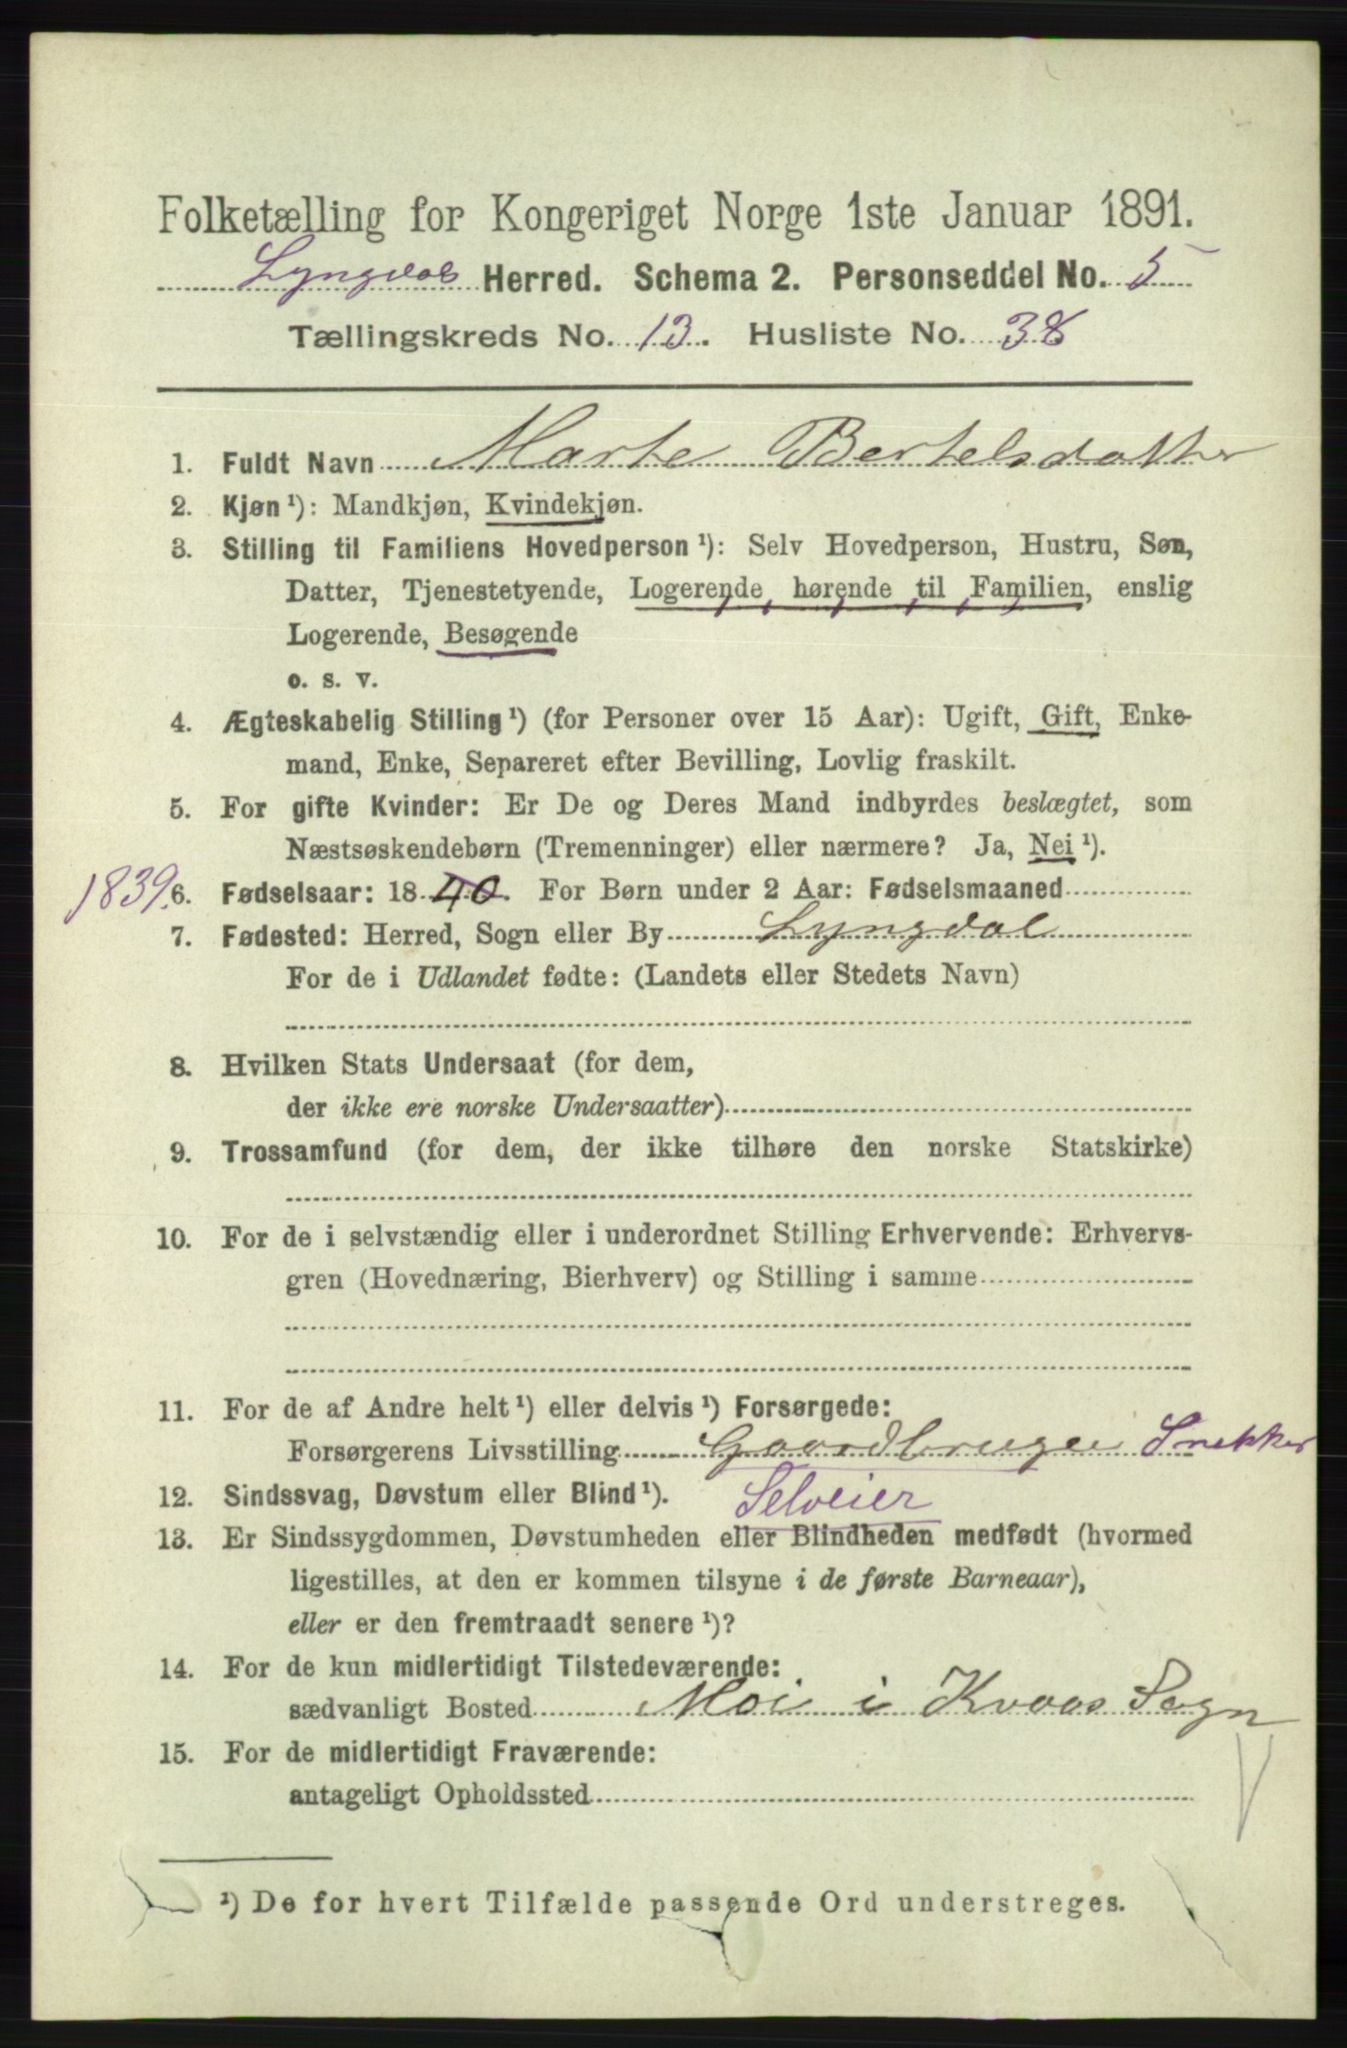 Folketælling for Kongeriget Norge 1ste Januar 1891.
Lyngdal Herred. Schema 2. Personseddel No. 5
Tællingskreds No. 13. Husliste No. 38
1. Fuldt Navn Marte Bertelsdatter
2. Kjøn ¹): Mandkjøn, Kvindekjøn.
3. Stilling til Familiens Hovedperson ¹): Selv Hovedperson, Hustru, Søn,
Datter, Tjenestetyende, Logerende, hørende til Familien, enslig
Logerende, Besøgende
o. s. v.
4. Ægteskabelig Stilling ¹) (for Personer over 15 Aar): Ugift, Gift, Enke-
mand, Enke, Separeret efter Bevilling, Lovlig fraskilt.
5. For gifte Kvinder: Er De og Deres Mand indbyrdes beslægtet, som
Næstsøskendebørn (Tremenninger) eller nærmere? Ja, Nei ¹).
1839. 6. Fødselsaar: 18 40. For Børn under 2 Aar: Fødselsmaaned
7. Fødested: Herred, Sogn eller By Lyngdal
For de i Udlandet fødte: (Landets eller Stedets Navn)
8. Hvilken Stats Undersaat (for dem,
der ikke ere norske Undersaatter)
9. Trossamfund (for dem, der ikke tilhøre den norske Statskirke)
10. For de i selvstændig eller i underordnet Stilling Erhvervende: Erhvervs-
gren (Hovednæring, Bierhverv) og Stilling i samme
11. For de af Andre helt ¹) eller delvis ¹) Forsørgede:
Forsørgerens Livsstilling Gaardbruger Snekker
12. Sindssvag, Døvstum eller Blind ¹). Selveier
13. Er Sindssygdommen, Døvstumheden eller Blindheden medfødt (hvormed
ligestilles, at den er kommen tilsyne i de første Barneaar),
eller er den fremtraadt senere ¹)?
14. For de kun midlertidigt Tilstedeværende:
sædvanligt Bosted Moi i Kvaas Sogn
15. For de midlertidigt Fraværende:
antageligt Opholdssted
¹) De for hvert Tilfælde passende Ord understreges.